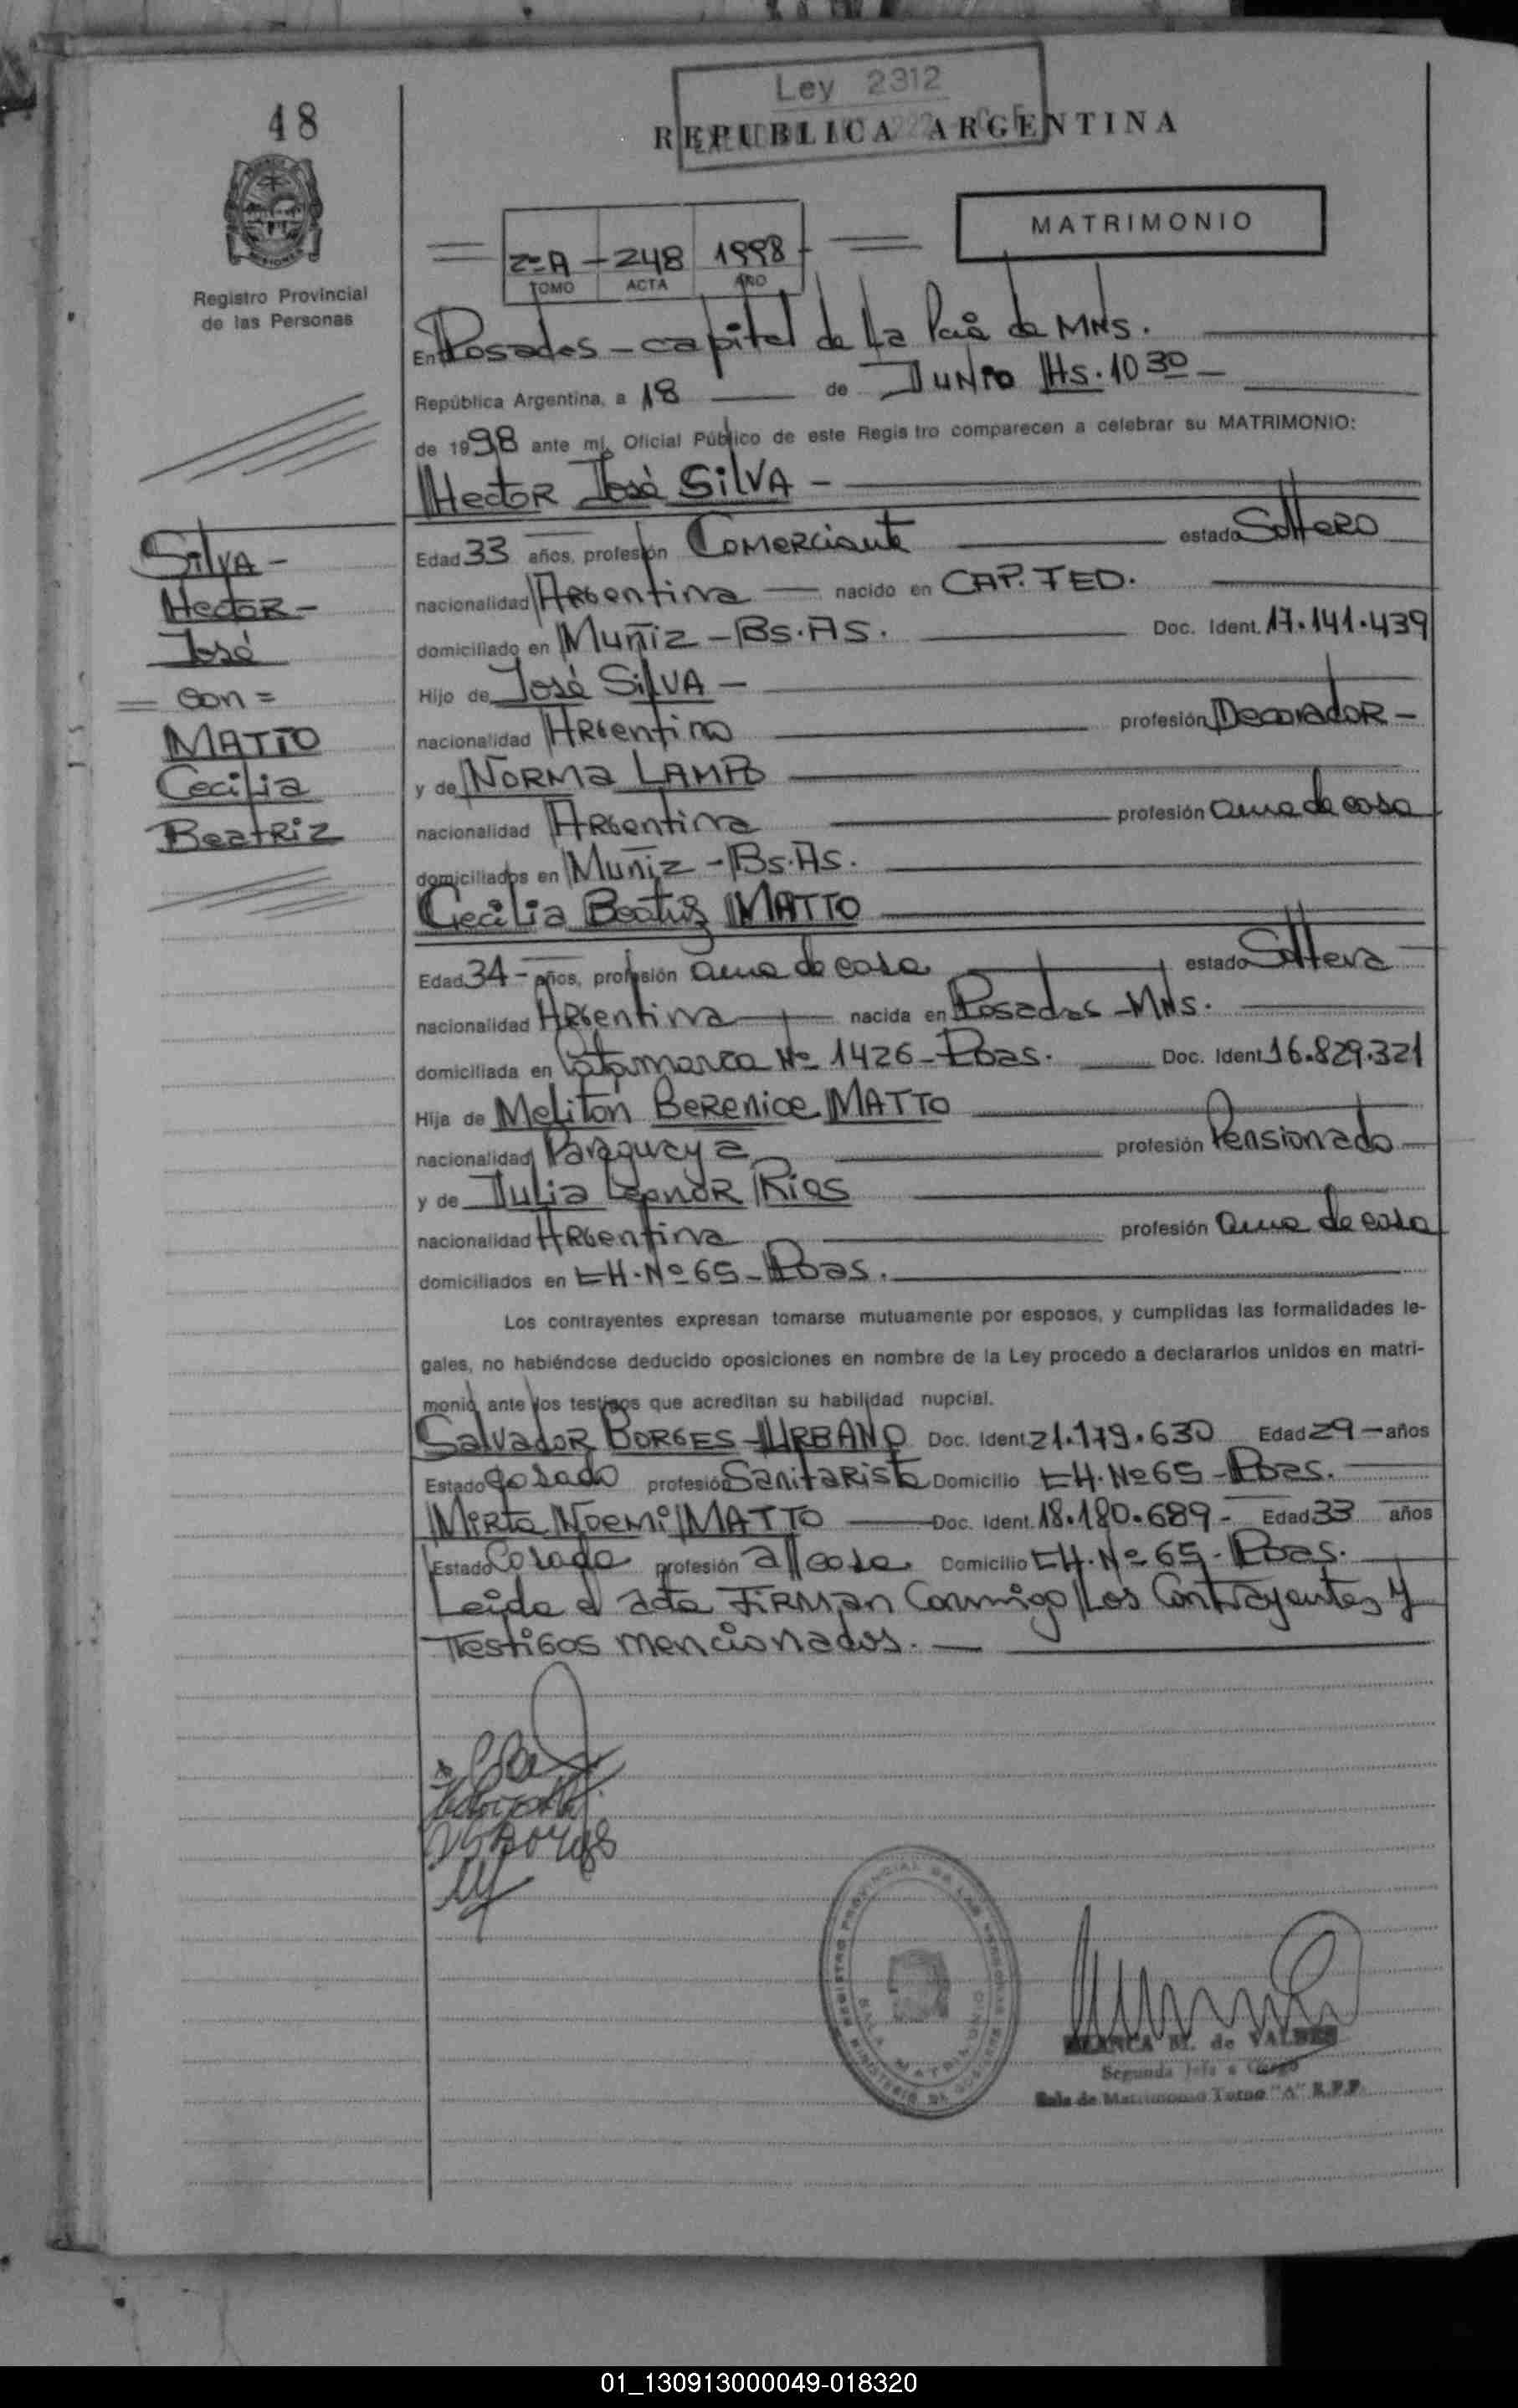 48
Ley 2312
REPUBLICA ARGENTINA
MATRIMONIO
2º A - 248 1998
TOMO ACTA AÑO
Registro Provincial
de las Personas
En Posadas - capital de La Pcia de MNS.
República Argentina, a 18 de JUNIO Hs. 10 30
de 1998 ante mí, Oficial Público de este Registro comparecen a celebrar su MATRIMONIO:
Hector José SILVA -
Silva -
Hector -
José
= con =
MATTO
Cecilia
Beatriz
Edad 33 años, profesión Comerciante estado Soltero
nacionalidad Argentina nacido en CAP. FED.
domiciliado en Muñiz - Bs. As. Doc. Ident. 17.141.439
Hijo de José SILVA -
nacionalidad Argentino profesión Decorador -
y de Norma
nacionalidad Argentina profesión ama de casa
domiciliados en Muñiz - Bs. As.
Cecilia Beatriz MATTO
Edad 34 - años, profesión ama de casa estado Soltera
nacionalidad Argentina nacida en Posadas - MNS.
domiciliada en Catamarca Nº 1426 - Pdas. Doc. Ident. 16.829.321
Hija de Meliton Berenice MATTO
nacionalidad Paraguaya profesión Pensionado
y de Julia Leonor Rios
nacionalidad Argentina profesión ama de casa
domiciliados en CH. Nº 65 - Pdas.
Los contrayentes expresan tomarse mutuamente por esposos, y cumplidas las formalidades le-
gales, no habiéndose deducido oposiciones en nombre de la Ley procedo a declararlos unidos en matri-
monio ante los testigos que acreditan su habilidad nupcial.
Salvador BORGES URBANO Doc. Ident. 21.179.630 Edad 29 - años
Estado Casado profesión Sanitarista Domicilio CH. Nº 65 - Pdas.
Mirta Noemi MATTO Doc. Ident. 18.180.689 - Edad 33 años
Estado Casada profesión a/ casa Domicilio CH. Nº 65 - Pdas.
Leida el acta Firman Conmigo Los Contrayentes y
Testigos mencionados.
BLANCA M. de VALDES
Segunda Jefa a Cargo
Sala de Matrimonio Turno "A" R.P.P.
01_130913000049-018320